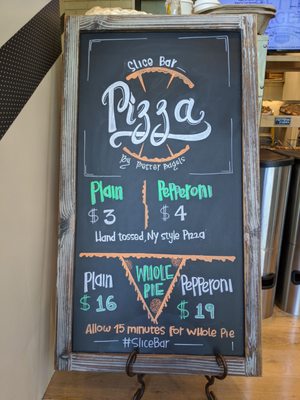 Slice Bar
Pizza
By Better Bagels
Plain Pepperoni
$3 $4
Hand tossed, NY style Pizza
WHOLE
Plain PIE Pepperoni
$16 $19
Allow 15 minutes for Whole Pie
#SliceBar